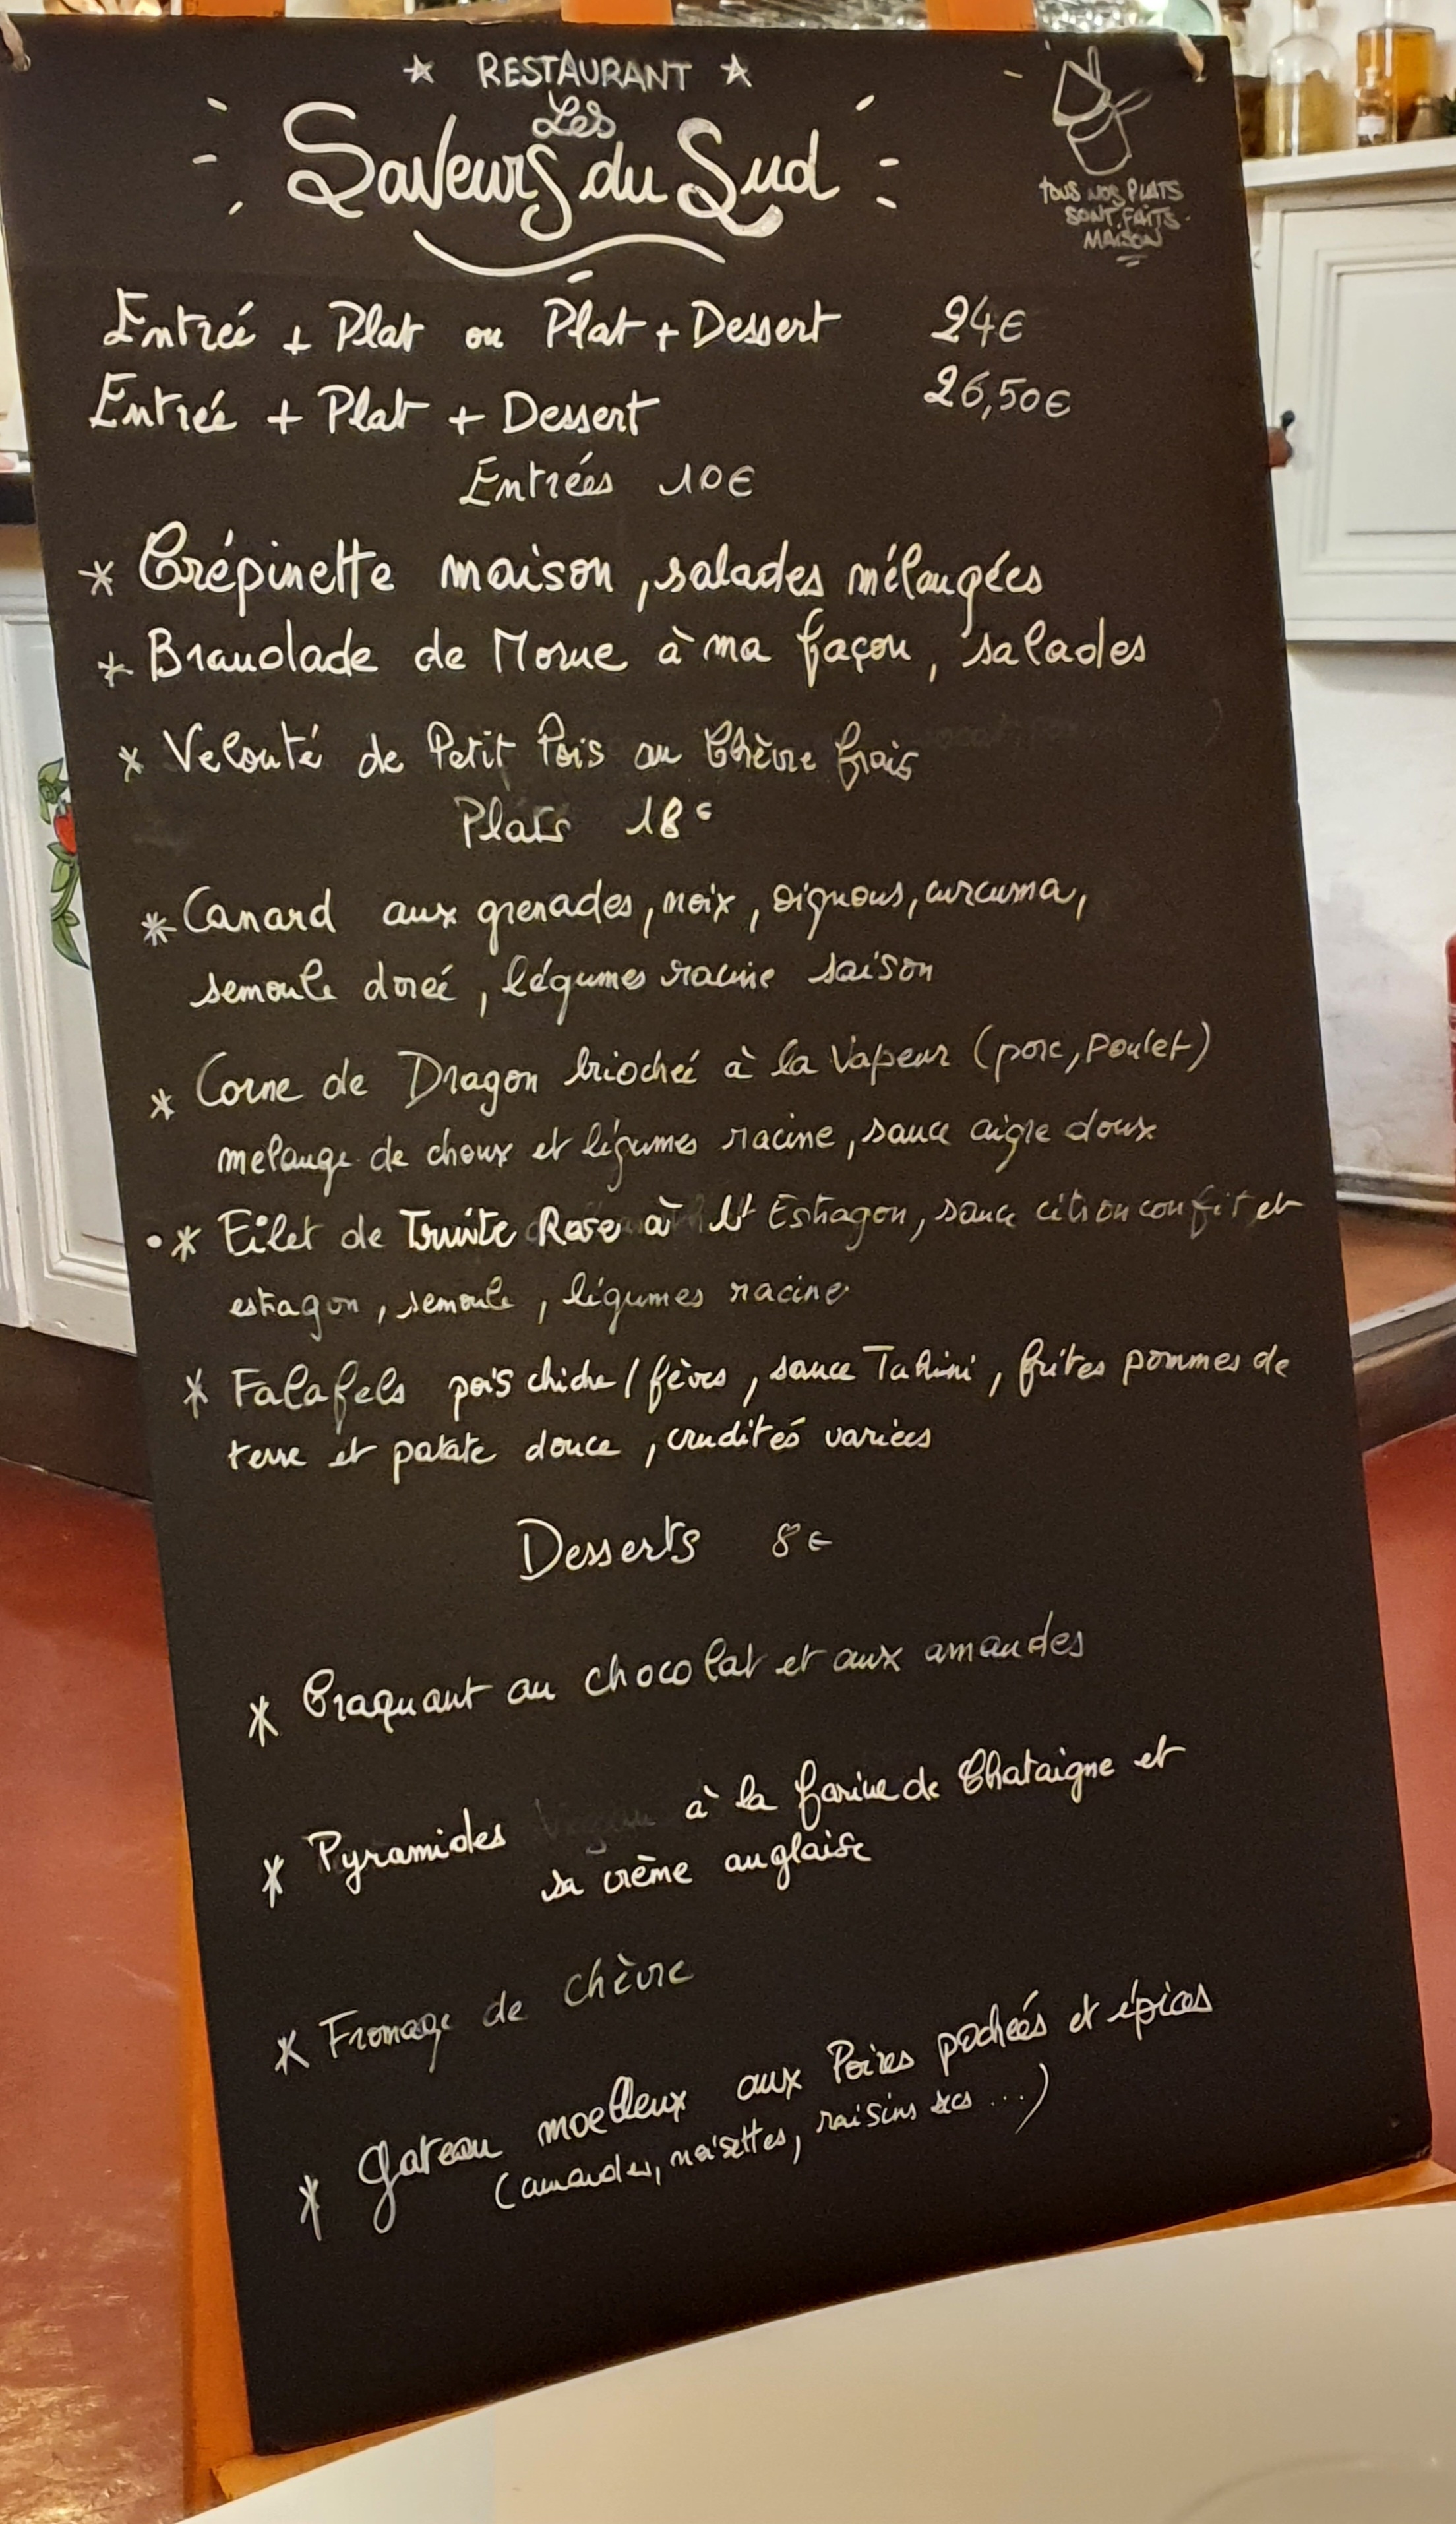 RESTAURANT
Les
Saveurs du Sud
TOUS NOS PLATS
SONT FAITS
MAISON
Entrée + Plat ou Plat + Dessert 24€
Entrée + Plat + Dessert 26,50€
Entrées 10€
* Crépinette maison, salades mélangées
* Brandade de Morue à ma façon, salades
* Velouté de Petit Pois au Chèvre frais
Plats 18€
* Canard aux grenades, noix, oignons, curcuma,
semoule dorée, légumes racine saison
* Corne de Dragon briochée à la Vapeur (porc, poulet)
melange de choux et légumes racine, sauce aigre doux
* Filet de Truite Rose à l' Estragon, sauce citron confit et
estragon, semoule, légumes racine
* Falafels pois chiche / fèves, sauce Tahini, frites pommes de
terre et patate douce, crudités variées
Desserts 8€
* Craquant au chocolat et aux amandes
* Pyramides à la farine de Chataigne et
sa crème anglaise
* Fromage de chèvre
* Gateau moelleux aux Poires pochées et épices
(amandes, noisettes, raisins ...)